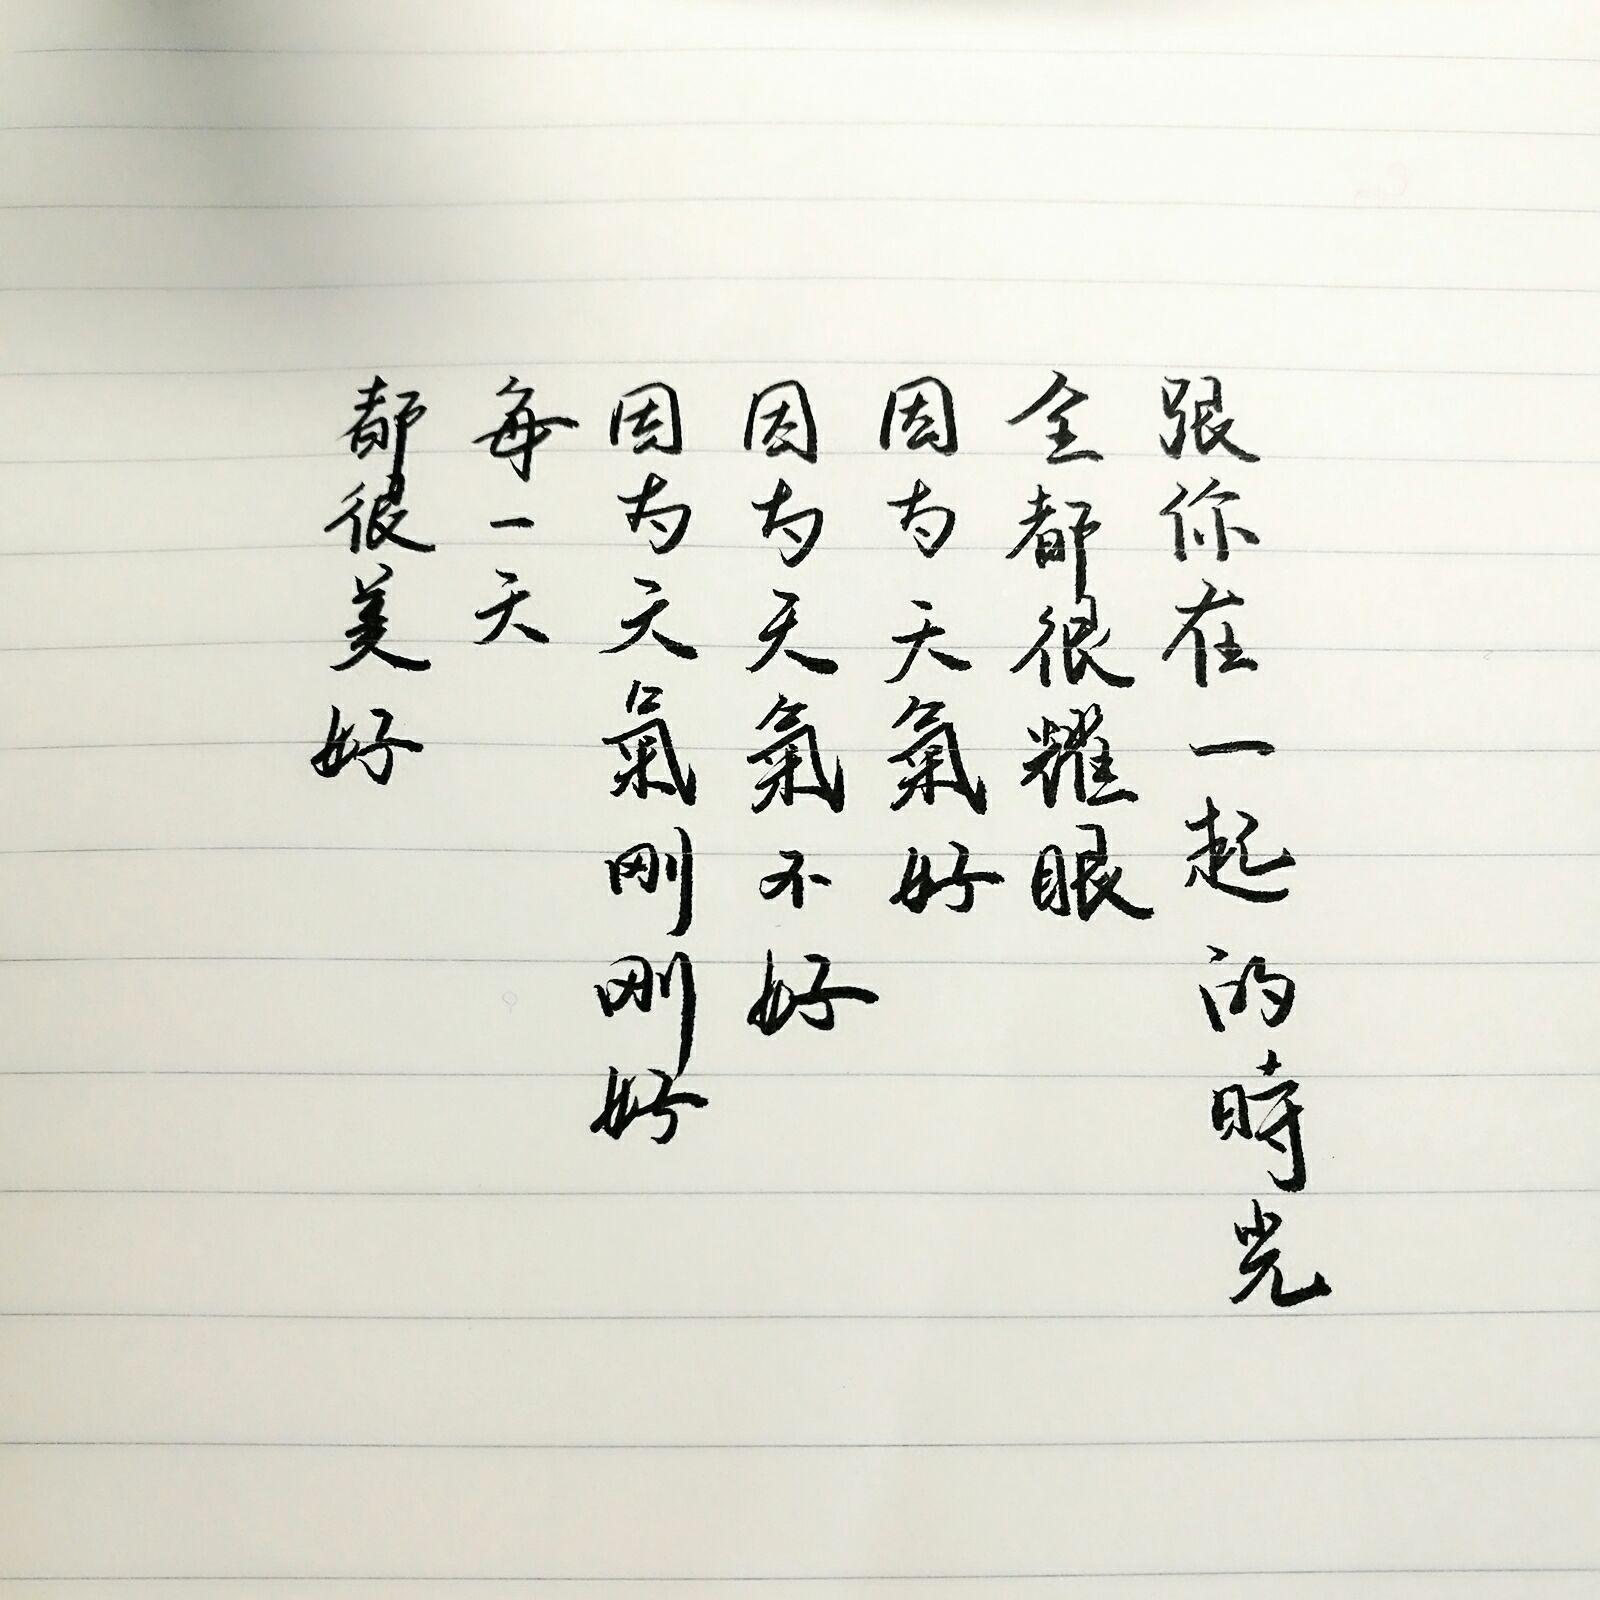 跟你在一起的時光
全都很耀眼
因为天氣好
因为天氣不好
因为天氣剛剛好
每一天
都很美好